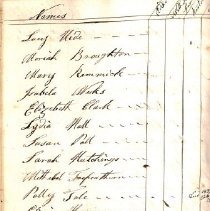 Names
Lucy Hide
Moriah Broughton
Mary Remmick
Isabela Weeks
Elizabeth Clark
Lydia Hall
Susan Pall
Sarah Hutchings
Mittebel
Polly Tale